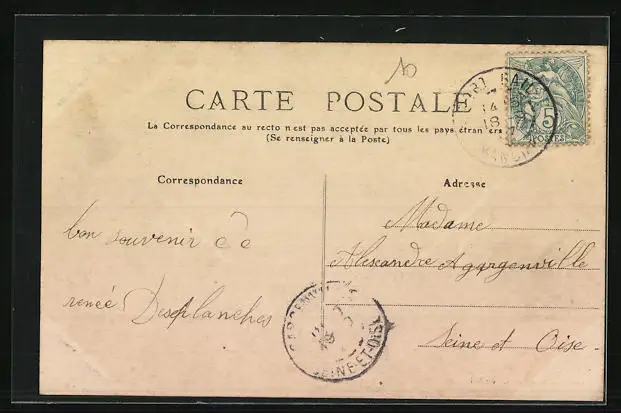 10
CARTE POSTALE
La Correspondance au recto n'est pas acceptée par tous les pays étrangers
(Se renseigner à la Poste)
PORT BAIL
14
18
MANCHE
5
POSTES
Correspondance
Adresse
bon souvenir de
renée Desplanches
Madame
Alexandre Agargenville
Seine et Oise
GARGENVILLE
SEINE-ET-OISE